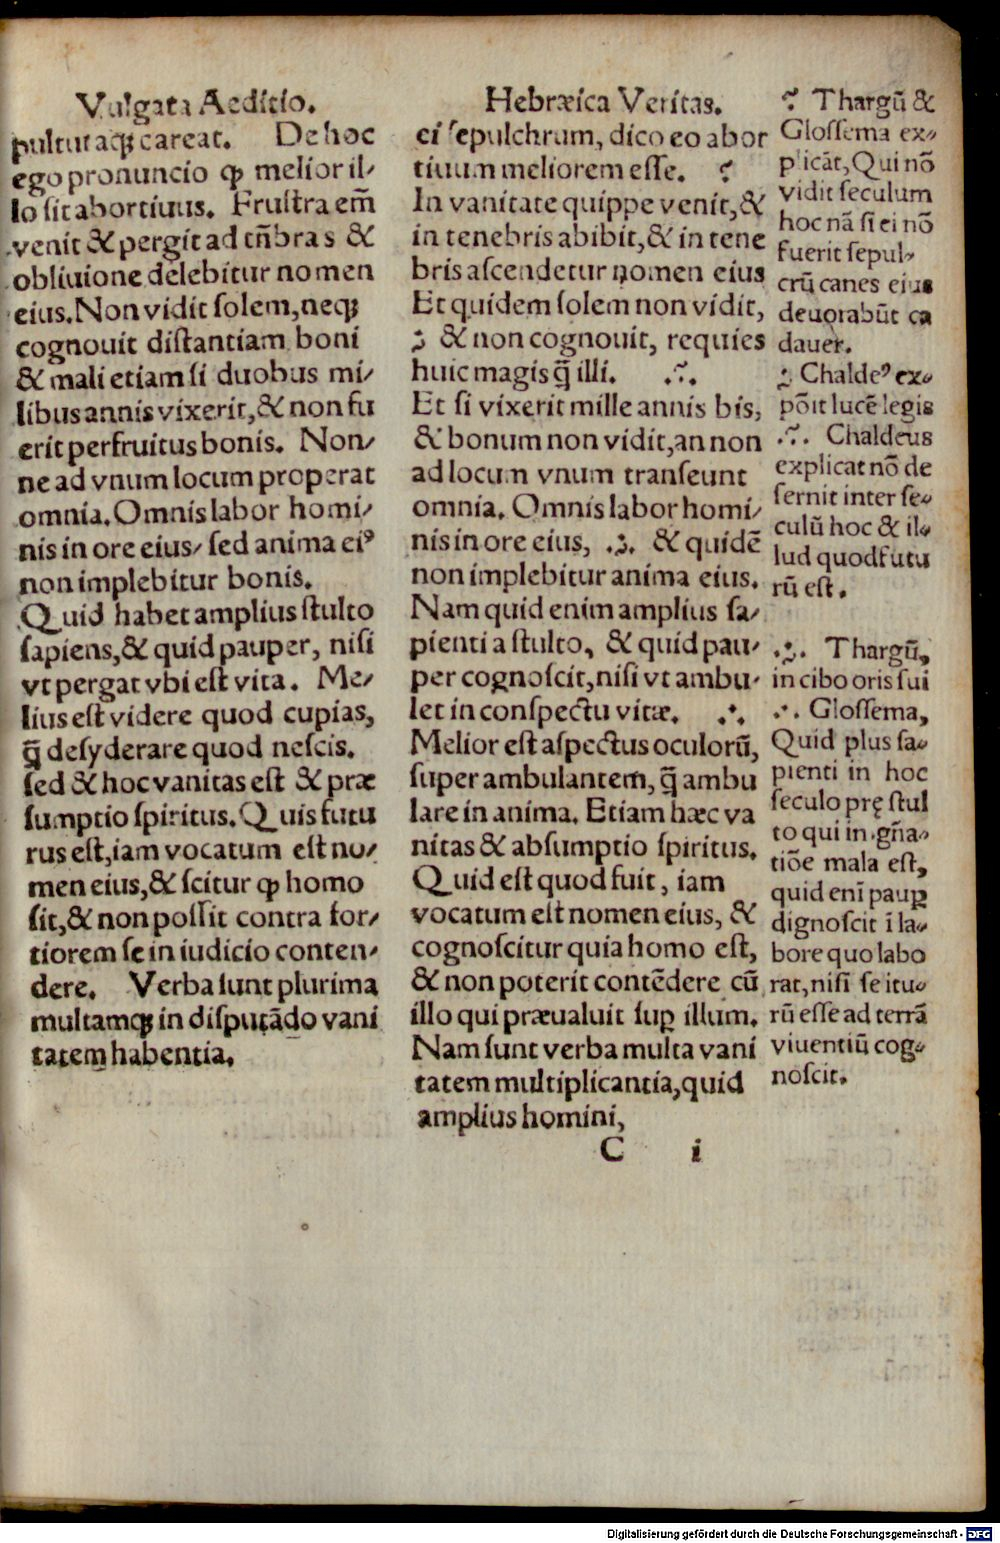 Vulgata Aeditio.
pulturaqꝫ careat. De hoc
ego pronuncio ꝙ melior il⸗
lo sit abortiuus. Frustra em̃
venit & pergit ad tñbras &
obliuione delebitur nomen
eius. Non vidit solem, neqꝫ
cognouit distantiam boni
& mali etiam si duobus mi⸗
libus annis vixerit, & non fu
erit perfruitus bonis. Non⸗
ne ad vnum locum properat
omnia. Omnis labor homi⸗
nis in ore eius/ sed anima eiꝰ
non implebitur bonis.
Quid habet amplius stulto
sapiens, & quid pauper, nisi
vt pergat vbi est vita. Me⸗
lius est videre quod cupias,
q̃ desyderare quod nescis.
sed & hoc vanitas est & præ
sumptio spiritus. Quis futu
rus est, iam vocatum est no⸗
men eius, & scitur ꝙ homo
sit, & non possit contra for⸗
tiorem se in iudicio conten⸗
dere. Verba sunt plurima
multamqꝫ in disputãdo vani
tatem habentia.
Hebræica Veritas.
ei sepulchrum, dico eo abor
tiuum meliorem esse.
In vanitate quippe venit, &
in tenebris abibit, & in tene
bris ascendetur nomen eius
Et quidem solem non vidit,
& non cognouit, requies
huic magis q̃ illi.
Et si vixerit mille annis bis,
& bonum non vidit, an non
ad locum vnum transeunt
omnia. Omnis labor homi⸗
nis in ore eius, & quidẽ
non implebitur anima eius.
Nam quid enim amplius sa⸗
pienti a stulto, & quid pau⸗
per cognoscit, nisi vt ambu⸗
let in conspectu vitæ.
Melior est aspectus oculorũ,
super ambulantem, q̃ ambu
lare in anima. Etiam hæc va
nitas & absumptio spiritus.
Quid est quod fuit, iam
vocatum est nomen eius, &
cognoscitur quia homo est,
& non poterit contẽdere cũ
illo qui præualuit suꝑ illum.
Nam sunt verba multa vani
tatem multiplicantia, quid
amplius homini,
C i
Thargũ &
Glossema ex⸗
plicãt, Qui nõ
vidit seculum
hoc nã si ei nõ
fuerit sepul⸗
crũ canes eius
deuorabũt ca
dauer.
Chaldeꝰ ex⸗
põit lucẽ legis
Chaldeus
explicat nõ de
sernit inter se⸗
culũ hoc & il⸗
lud quod futu
rũ est.
Thargũ,
in cibo oris sui
Glossema,
Quid plus sa⸗
pienti in hoc
seculo prę stul
to qui in gña⸗
tiõe mala est,
quid enĩ pauꝑ
dignoscit ĩ la⸗
bore quo labo
rat, nisi se itu⸗
rũ esse ad terrã
viuentiũ cog⸗
noscit.
Digitalisierung gefördert durch die Deutsche Forschungsgemeinschaft - DFG